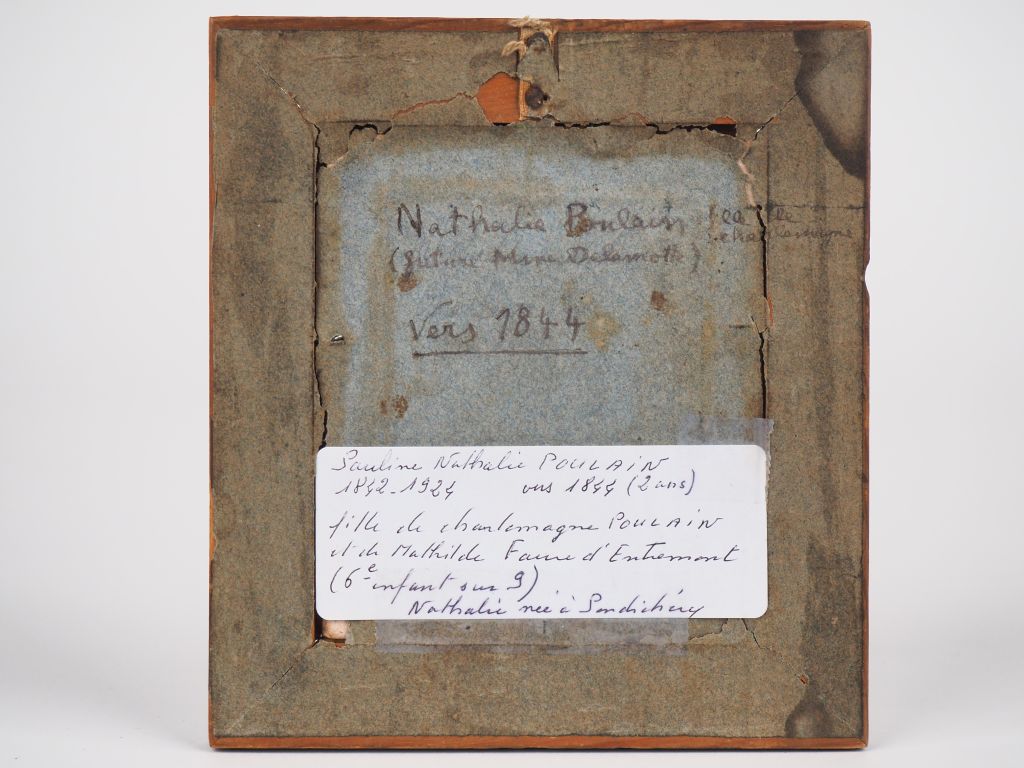 Nathalie Poulain
(future Mme Delamotte)
fille
charlemagne
Vers 1844
Pauline Nathalie POULAIN
1842-1924 vers 1844 (2 ans)
fille de charlemagne POULAIN
et de Mathilde Faure d'Entremont
(6e enfant sur 9)
Nathalie née à Pondichéry